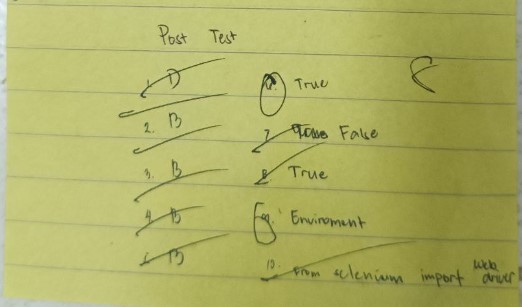 Post Test
8
1. D
2. B
3. B
4. B
5. B
6. True
7. False
8. True
9. Enviroment
10. From selenium import web driver